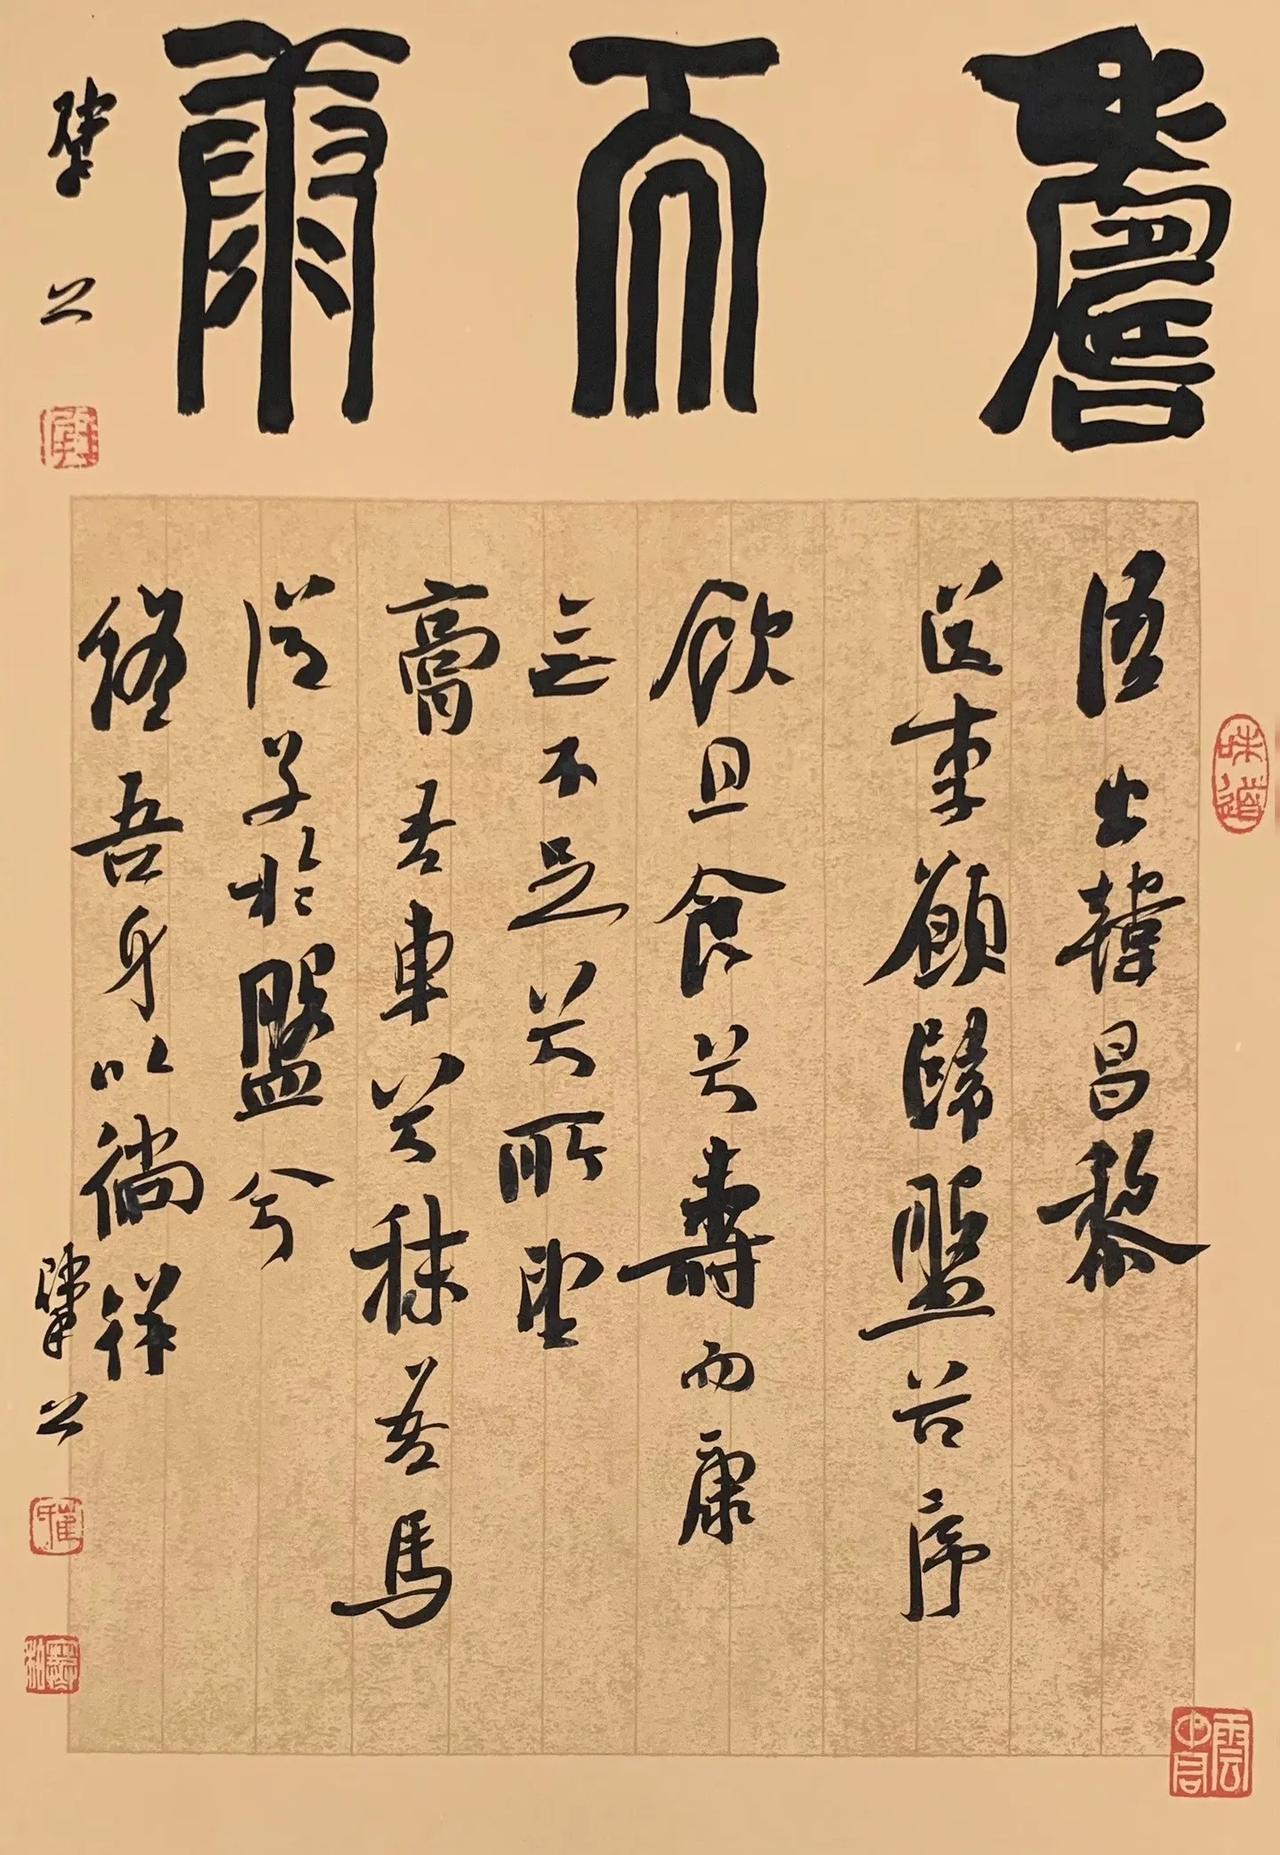 壽而康
語出韓昌黎
送李願歸盤谷序
飲且食兮壽而康
無不足兮所望
膏吾車兮秣吾馬
從子於盤兮
終吾身以徜徉
味道